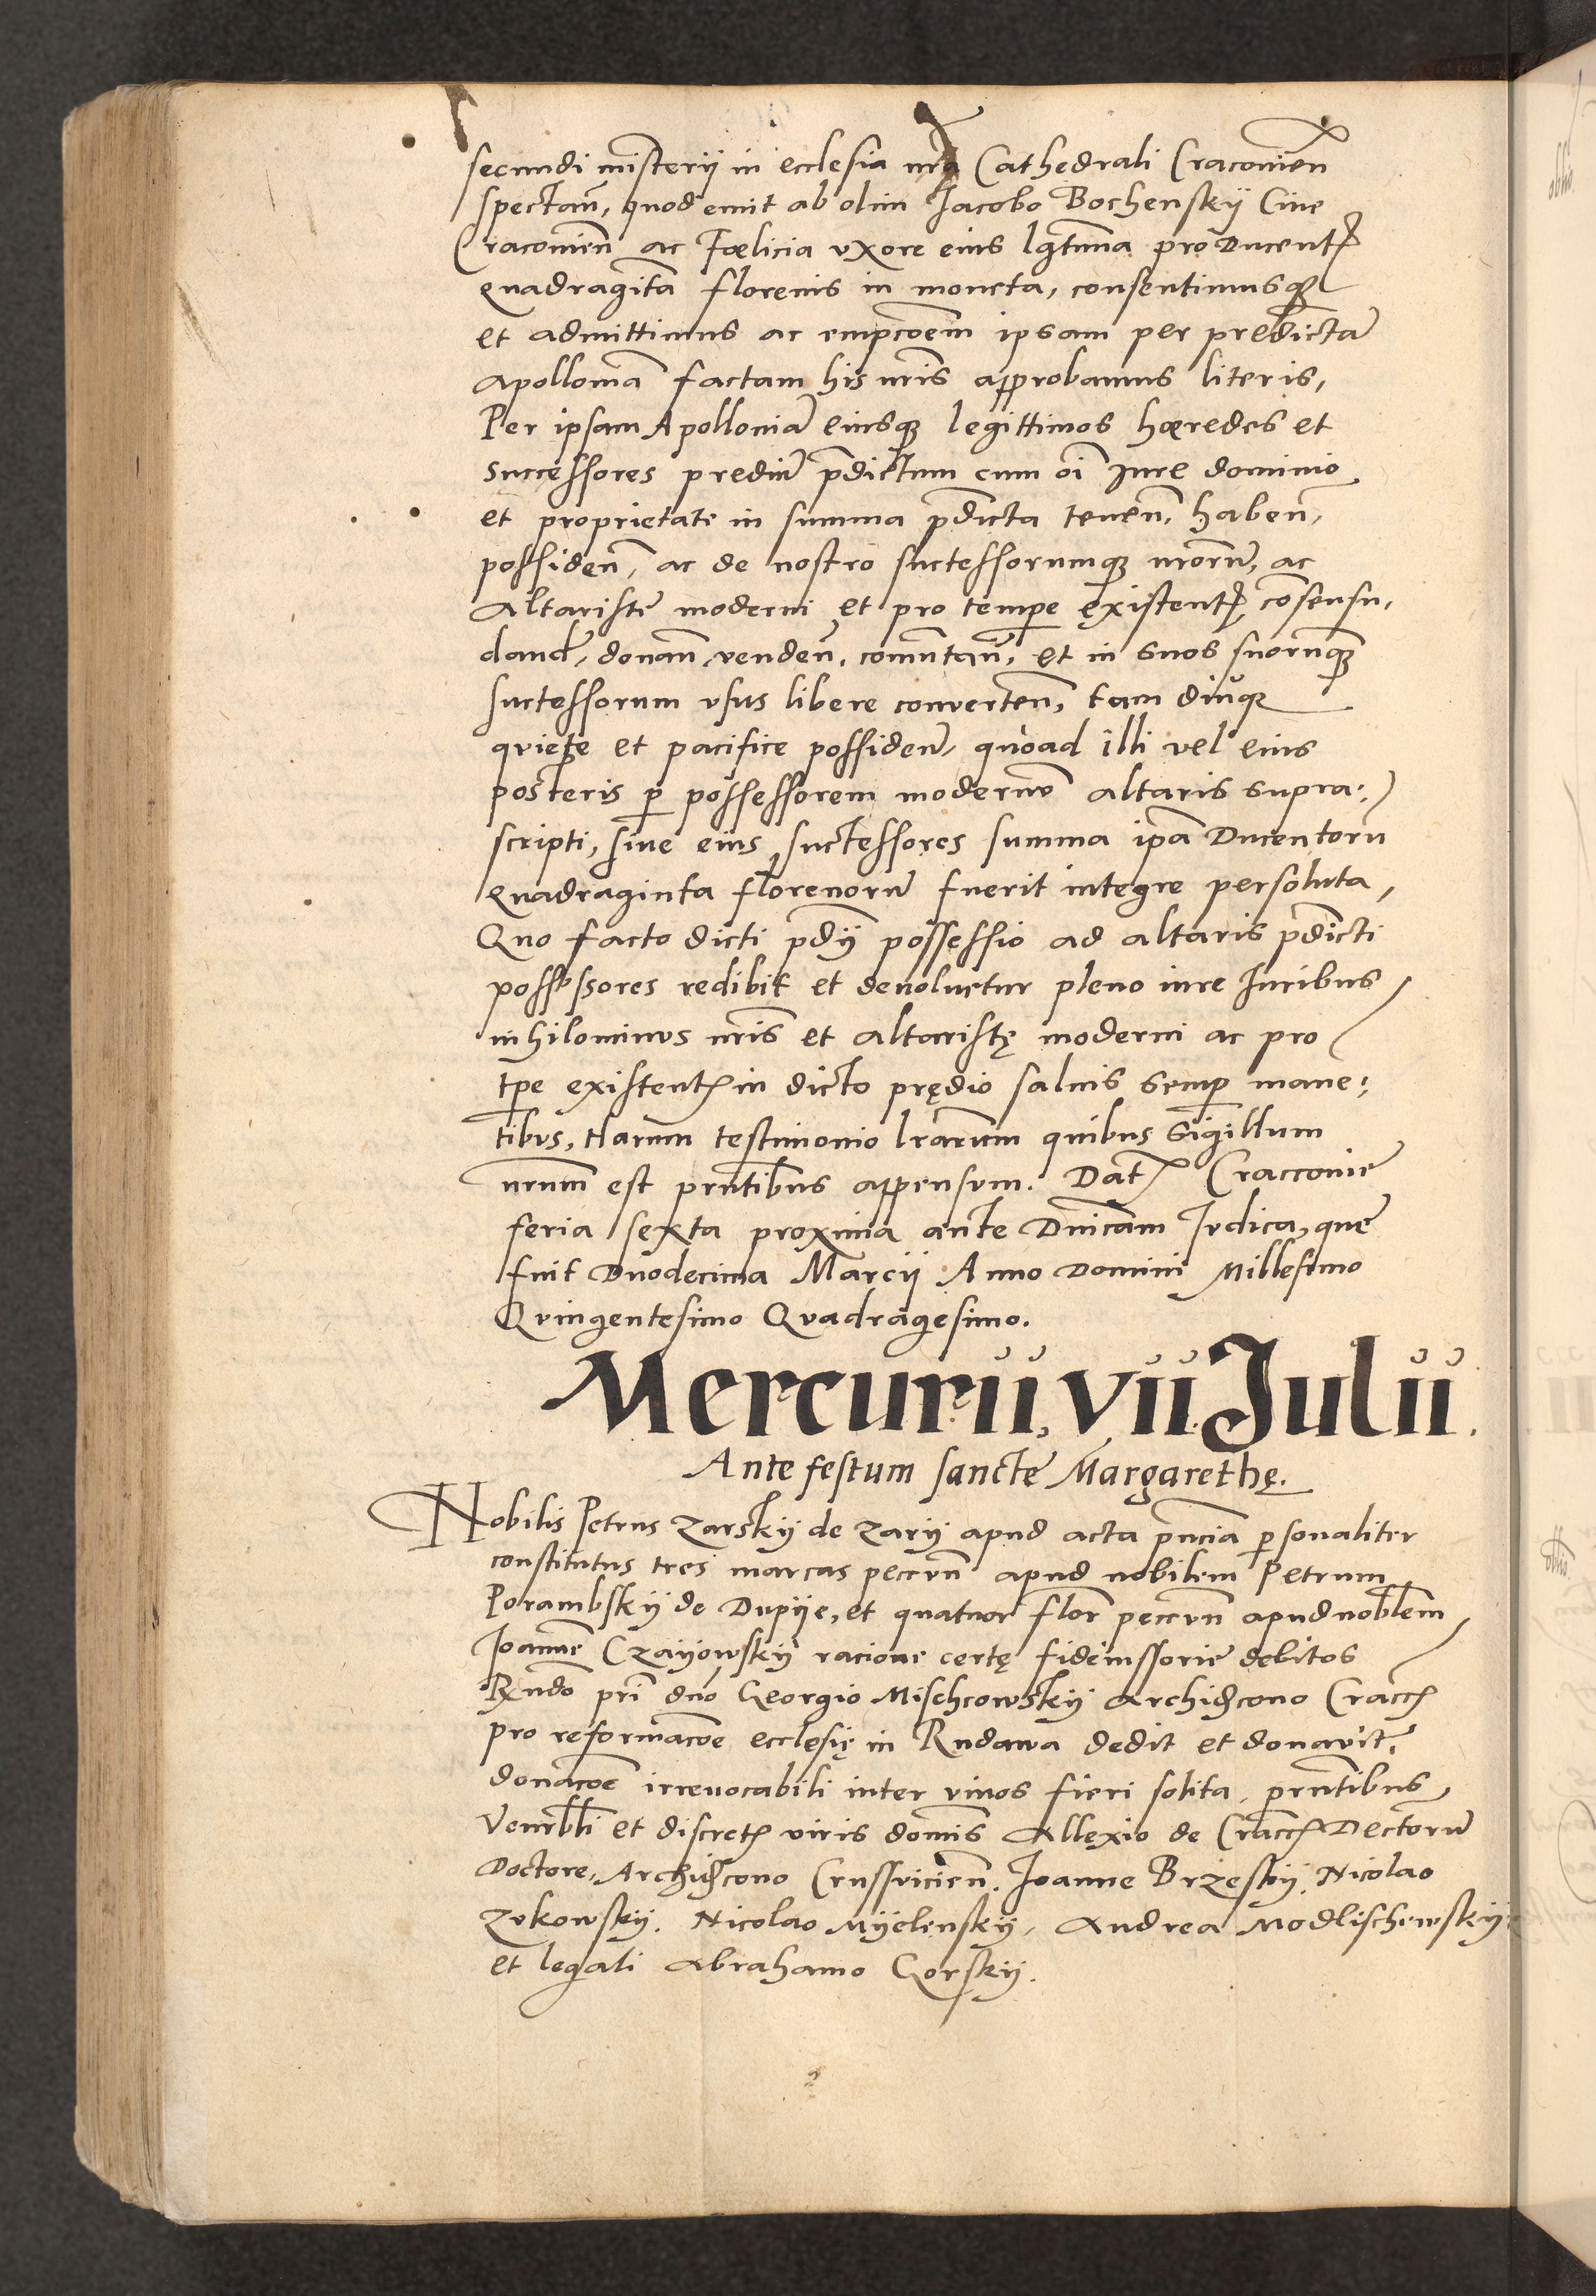 secundi misterij in ecclesia nrã Cathedrali Cracovien̄
spectan̄, quod emit ab olim Jacobo Bochenskÿ Cive
Cracovien̄ ac Fœlicia vxore eius lgt̄ima pro Ducent̄
quadragīta florenis in moneta, consentimusq̨
et admittimus ac empcōem ipsam per predictā
Apolloniā factam his nrīs approbamus literis,
Per ipsam Apolloniā eiusq̨ legittimos hœredes et
successores prediū p̄dictum cum oī Jure dominio
et proprietate in summa p̄dicta tenen̄, haben̄,
possiden̄, ac de nostro successorumq̨ nrōrum̄, ac
Altaristę moderni et pro tempe existent̄, cōsensu,
dand̄, donan̄, venden̄, comutan̄, et in suos suorumq̨
successorum vsus libere conuerten̄, tam diuq̨
quiete et pacifice possiden̄, quoad illi vel eius
posteris p̄ possessorem modernū altaris supra:
scripti, siue eius successores summa ipā Ducentorū
quadraginta florenorū fuerit integre persoluta,
Quo facto dicti p̄dij possessio ad altaris p̄dicti
possessores redibit et deuoluetur pleno iure Juribus
nihilominus nrīs et altaristę moderni ac pro
tp̄e existent̄ in dicto prędio saluis semp mane:
tibus, Harum testimonio lrārum quibus Sigillum
nrūm est pr̄ntibus appensum. Dat̄ Craccouię
feria sexta proxima ante Dn̄icam Judica, quę
fuit Duodecima Marcij Anno Domini Millesimo
Quingentesimo Quadragesimo.
Mercurii, vii Julii.
Ante festum sanctę Margarethę.
Nobilis Petrus Zarskÿ de Zarÿ apud acta pr̄ncia personaliter
constitutus tres marcas peccun̄ apud nobilem Petrum
Porambskÿ de Dupÿe, et quatuor flor̄ peccun̄ apud nobl̄em
Joannē Czaÿowskÿ racione certę fideiussorię debitos
Rn̄do prī dn̄o Georgio Mischcowskÿ Archidcono Cracc̄
pro reformacōe ecclesię in Rudawa dedit et donavit,
donacōe irreuocabili inter viuos fieri solita, prn̄tibus,
Venrbl̄i et discret̄ viris domīs Allexio de Cracc̄ Dectorū
Doctore, Archidcono Crussvicien̄, Joanne Brzeskÿ, Nicolao
Zukowskÿ, Nicolao Mÿelenskÿ, Andrea Modlischewskÿ
et legali Abrahamo Gorskÿ.